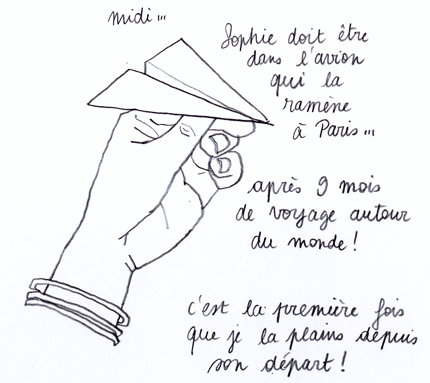 midi...
Sophie doit être
dans l'avion
qui la
ramène
à Paris...
après 9 mois
de voyage autour
du monde !
c'est la première fois
que je la plains depuis
son départ !